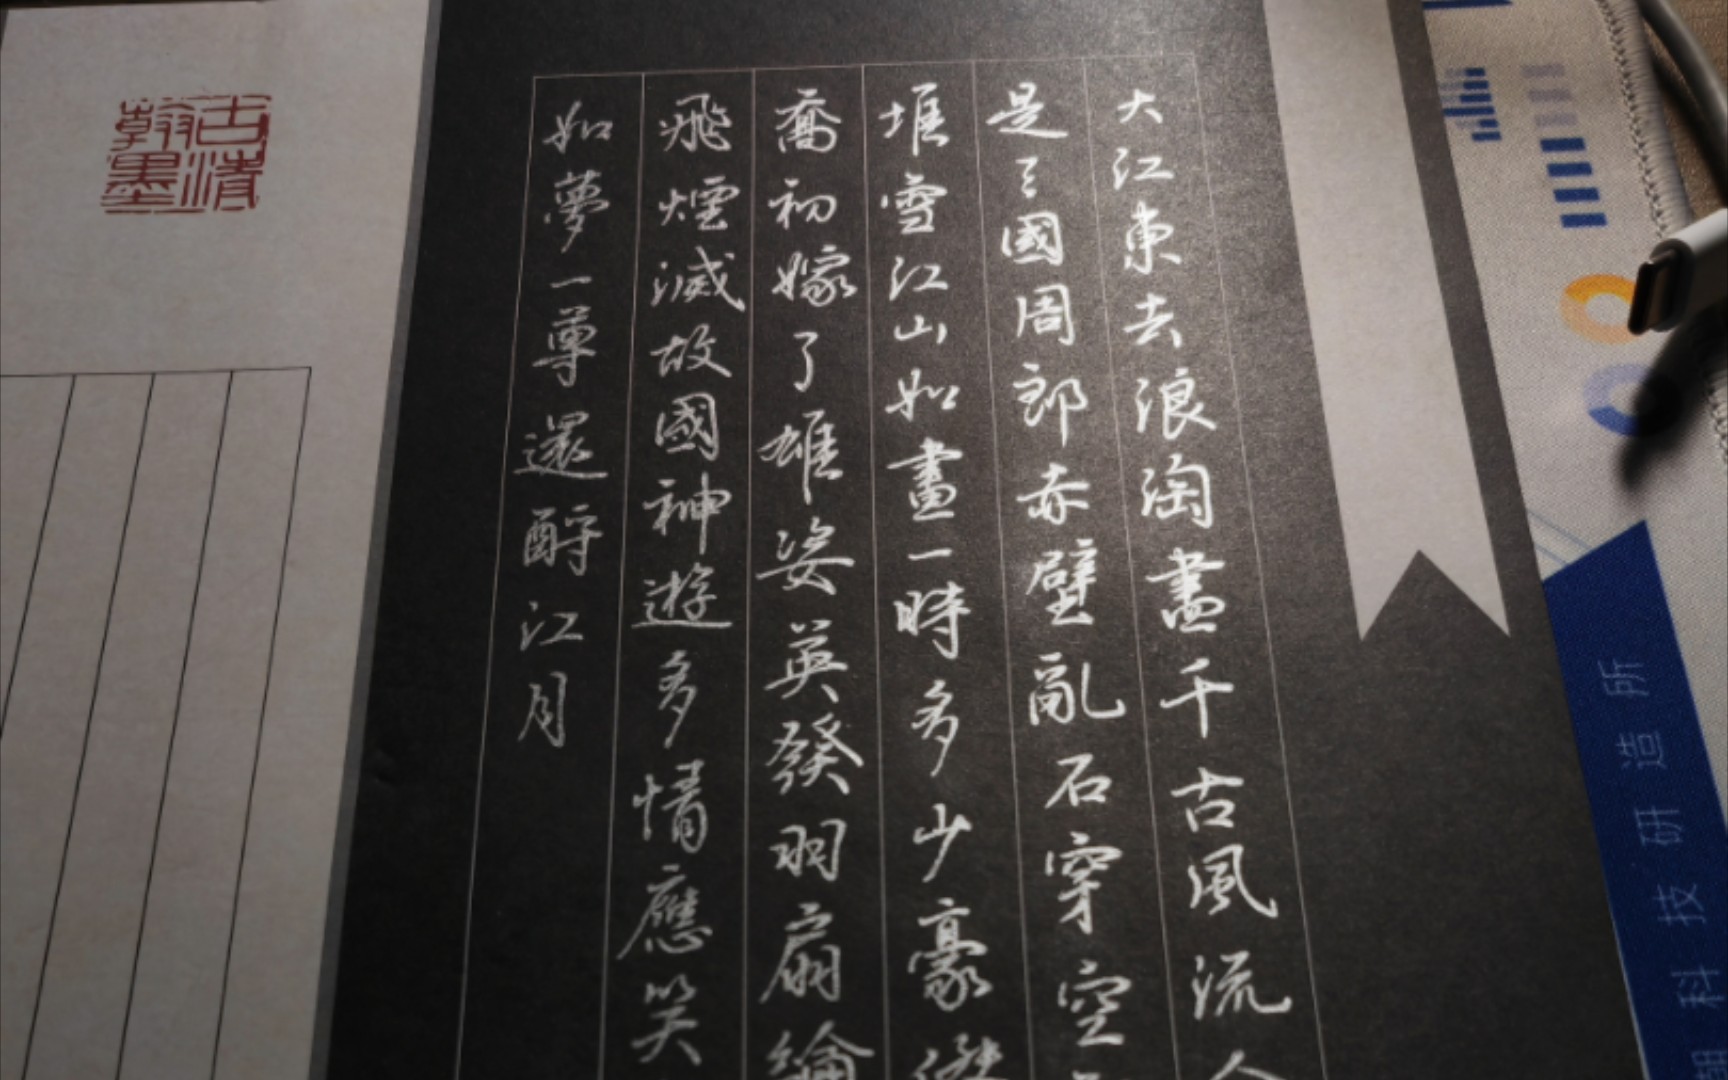 大江東去浪淘盡千古風流人
是三國周郎赤壁亂石穿空
堆雪江山如畫一時多少豪傑
喬初嫁了雄姿英發羽扇綸
飛煙滅故國神遊多情應笑
如夢一尊還酹江月
古清翰墨
科技研造所